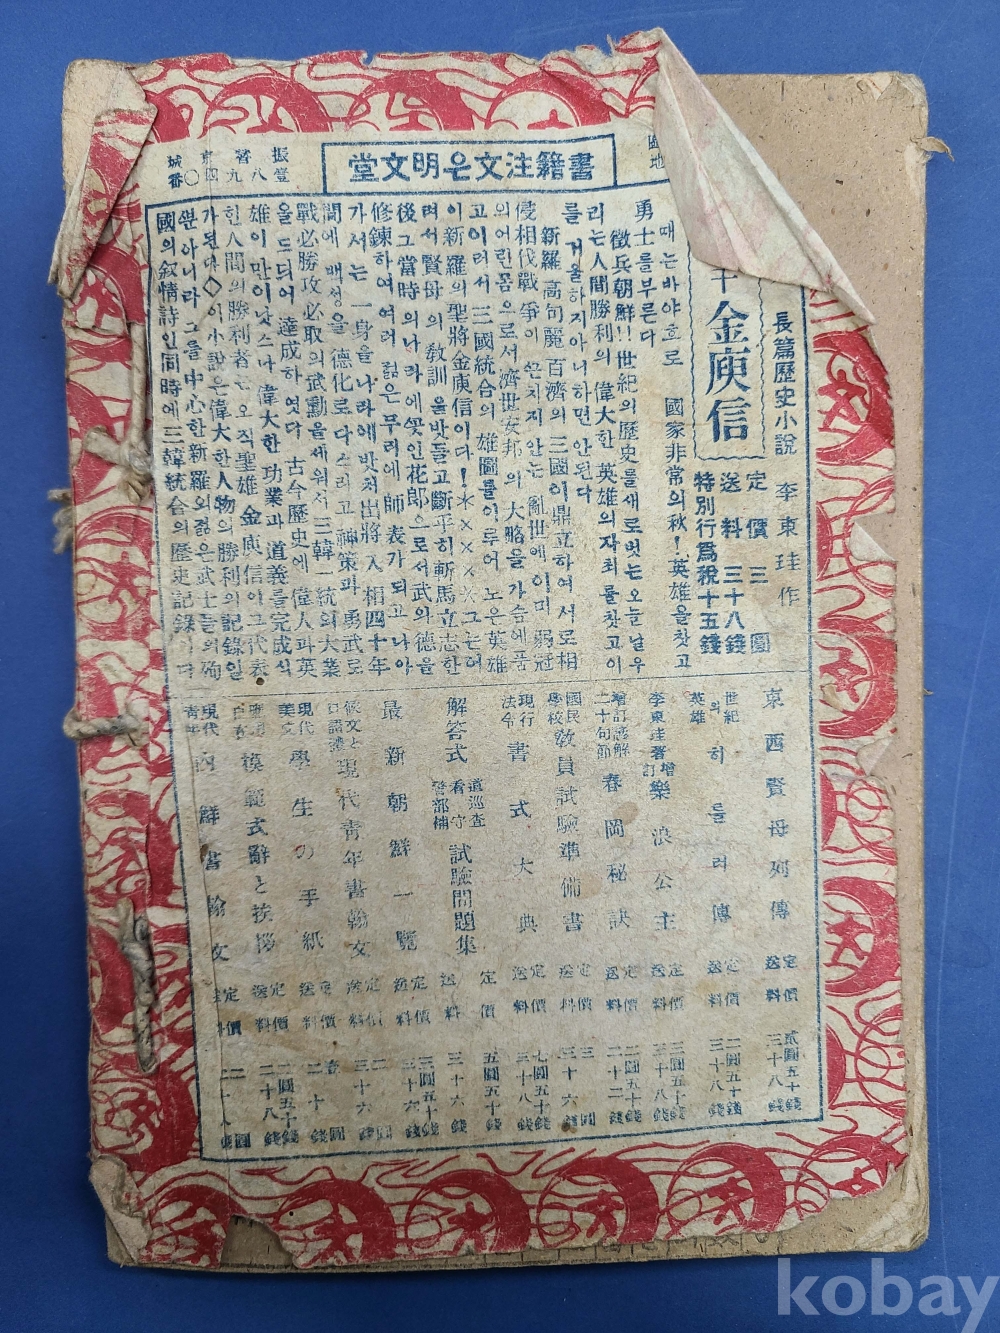 書籍注文은明文堂
長篇歷史小說 李東珪作
金庾信
定價 三圓
送料 三十八錢
特別行爲稅十五錢
때는바야흐로 國家非常의秋! 英雄을찻고
勇士를부른다
徵兵朝鮮!! 世紀의歷史를새로벗는오늘날우
리는人間勝利의 偉大한 英雄의자최를찻고이
를 거울하지아니하면안된다
新羅 高句麗 百濟의 三國이鼎立하여서로相
侵相伐戰爭이 끈치지안는亂世에이미 弱冠
의어린몸으로서濟世安邦의大略을가슴에품
고이러서 三國統合의 雄圖를이루어 노은英雄
이新羅의聖將金庾信이다!
며서賢母의敎訓을밧들고斷乎히斬馬立志한
後그當時의나라에꼿인花郞으로서武와德을
修鍊하여 여러 젊은무리에師表가되고나아
가서는 一身을나라에밧처出將入相四十年
間에백성을德化로다스리고神策과勇武로
戰必勝攻必取의武勳을세워서三韓一統의大業
을드듸어達成하엿다 古今歷史에偉人과英
雄이만이낫스나偉大한功業과道義를完成식
힌人間의勝利者는오직聖雄金庾信이그代表
가된다◇이小說은偉大한人物의勝利의記錄일
뿐아니라그를中心한新羅의젊은武士들의殉
國의敍情詩인同時에三韓統合의歷史記錄이다
東西賢母列傳 定價 貳圓五十錢 送料 三十八錢
世紀의英雄 히틀러傳 定價 二圓五十錢 送料 三十八錢
李東珪著 增訂 樂浪公主 定價 三圓五十錢 送料 三十八錢
增訂諺解 二十句節 春岡秘訣 定價 二圓五十錢 送料 二十二錢
國民學校 敎員試驗準備書 定價 三圓 送料 三十六錢
現行法令 書式大典 定價 七圓五十錢 送料 三十八錢
解答式 道巡査 看守 警部補 試驗問題集 定價 五圓五十錢 送料 三十六錢
最新朝鮮一覽 定價 三圓五十錢 送料 三十六錢
現代靑年書翰文 定價 二圓 送料 三十六錢
現代美文 學生の手紙 定價 壹圓 送料 二十錢
模範式辭と挨拶 定價 二圓五十錢 送料 二十八錢
現代靑年 內鮮書翰文 定價 二圓 二十八錢
kobay